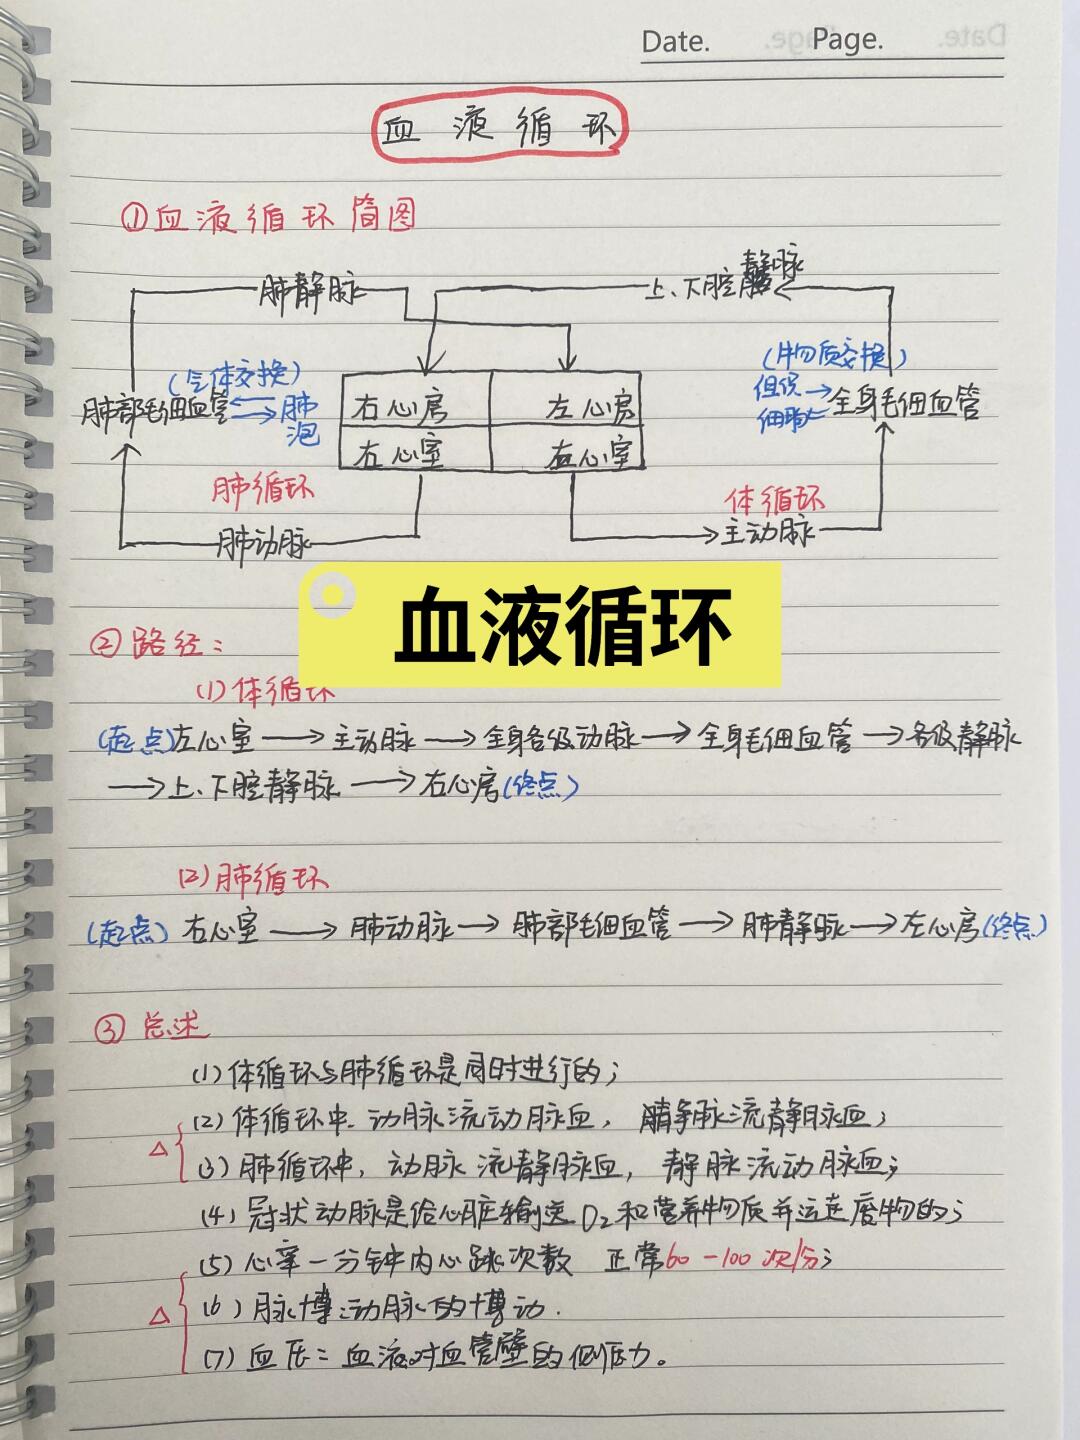 Date. Page.
血液循环
①血液循环简图
肺静脉 上、下腔静脉
(气体交换) (物质交换)
肺部毛细血管 肺泡 右心房 左心房 组织细胞 全身毛细血管
右心室 左心室
肺循环 体循环
肺动脉 主动脉
血液循环
②路径:
(1)体循环
(起点)左心室→主动脉→全身各级动脉→全身毛细血管→各级静脉
→上、下腔静脉→右心房(终点)
(2)肺循环
(起点)右心室→肺动脉→肺部毛细血管→肺静脉→左心房(终点)
③总述
(1)体循环与肺循环是同时进行的;
(2)体循环中、动脉流动脉血, 静脉流静脉血;
(3)肺循环中, 动脉流静脉血, 静脉流动脉血;
(4)冠状动脉是给心脏输送O₂和营养物质并运走废物的;
(5)心率一分钟内心跳次数 正常60-100次/分;
(6)脉搏:动脉的搏动.
(7)血压:血液对血管壁的侧压力。